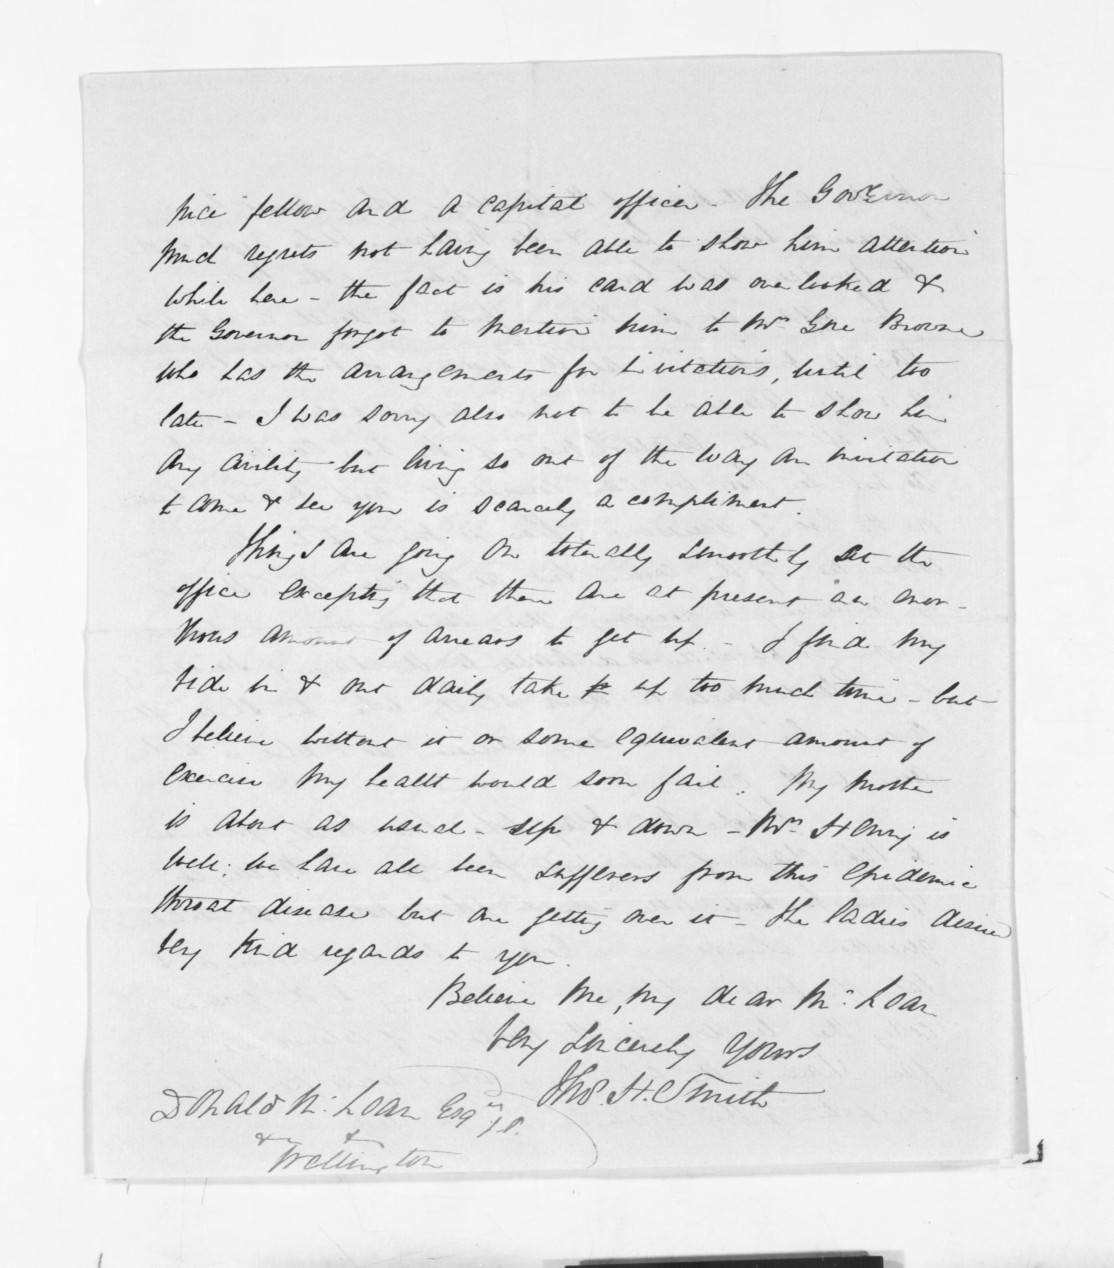 nice fellow and a capital officer. The Governor
much regrets not having been able to show him attention
while here - the fact is his card was overlooked &
the Governor forgot to mention him to Mrs Gore Browne
who has the arrangements for invitations, until too
late - I was sorry also not to be able to show him
any civility but living so out of the way an invitation
to come & see you is scarcely a compliment.
Things are going on tolerably smoothly at the
office excepting that there are at present an enor-
mous amount of arrears to get up. - I find my
ride in & out daily take up too much time - but
I believe without it or some equivalent amount of
exercise my health would soon fail. My mother
is about as usual - up & down - Mrs Henry is
well: we have all been sufferers from this epidemic
throat disease but are getting over it - The ladies desire
very kind regards to you.
Believe me, my dear McLean
Very Sincerely Yours
Thos. H. Smith
Donald McLean Esqre J.P.
& &
Wellington